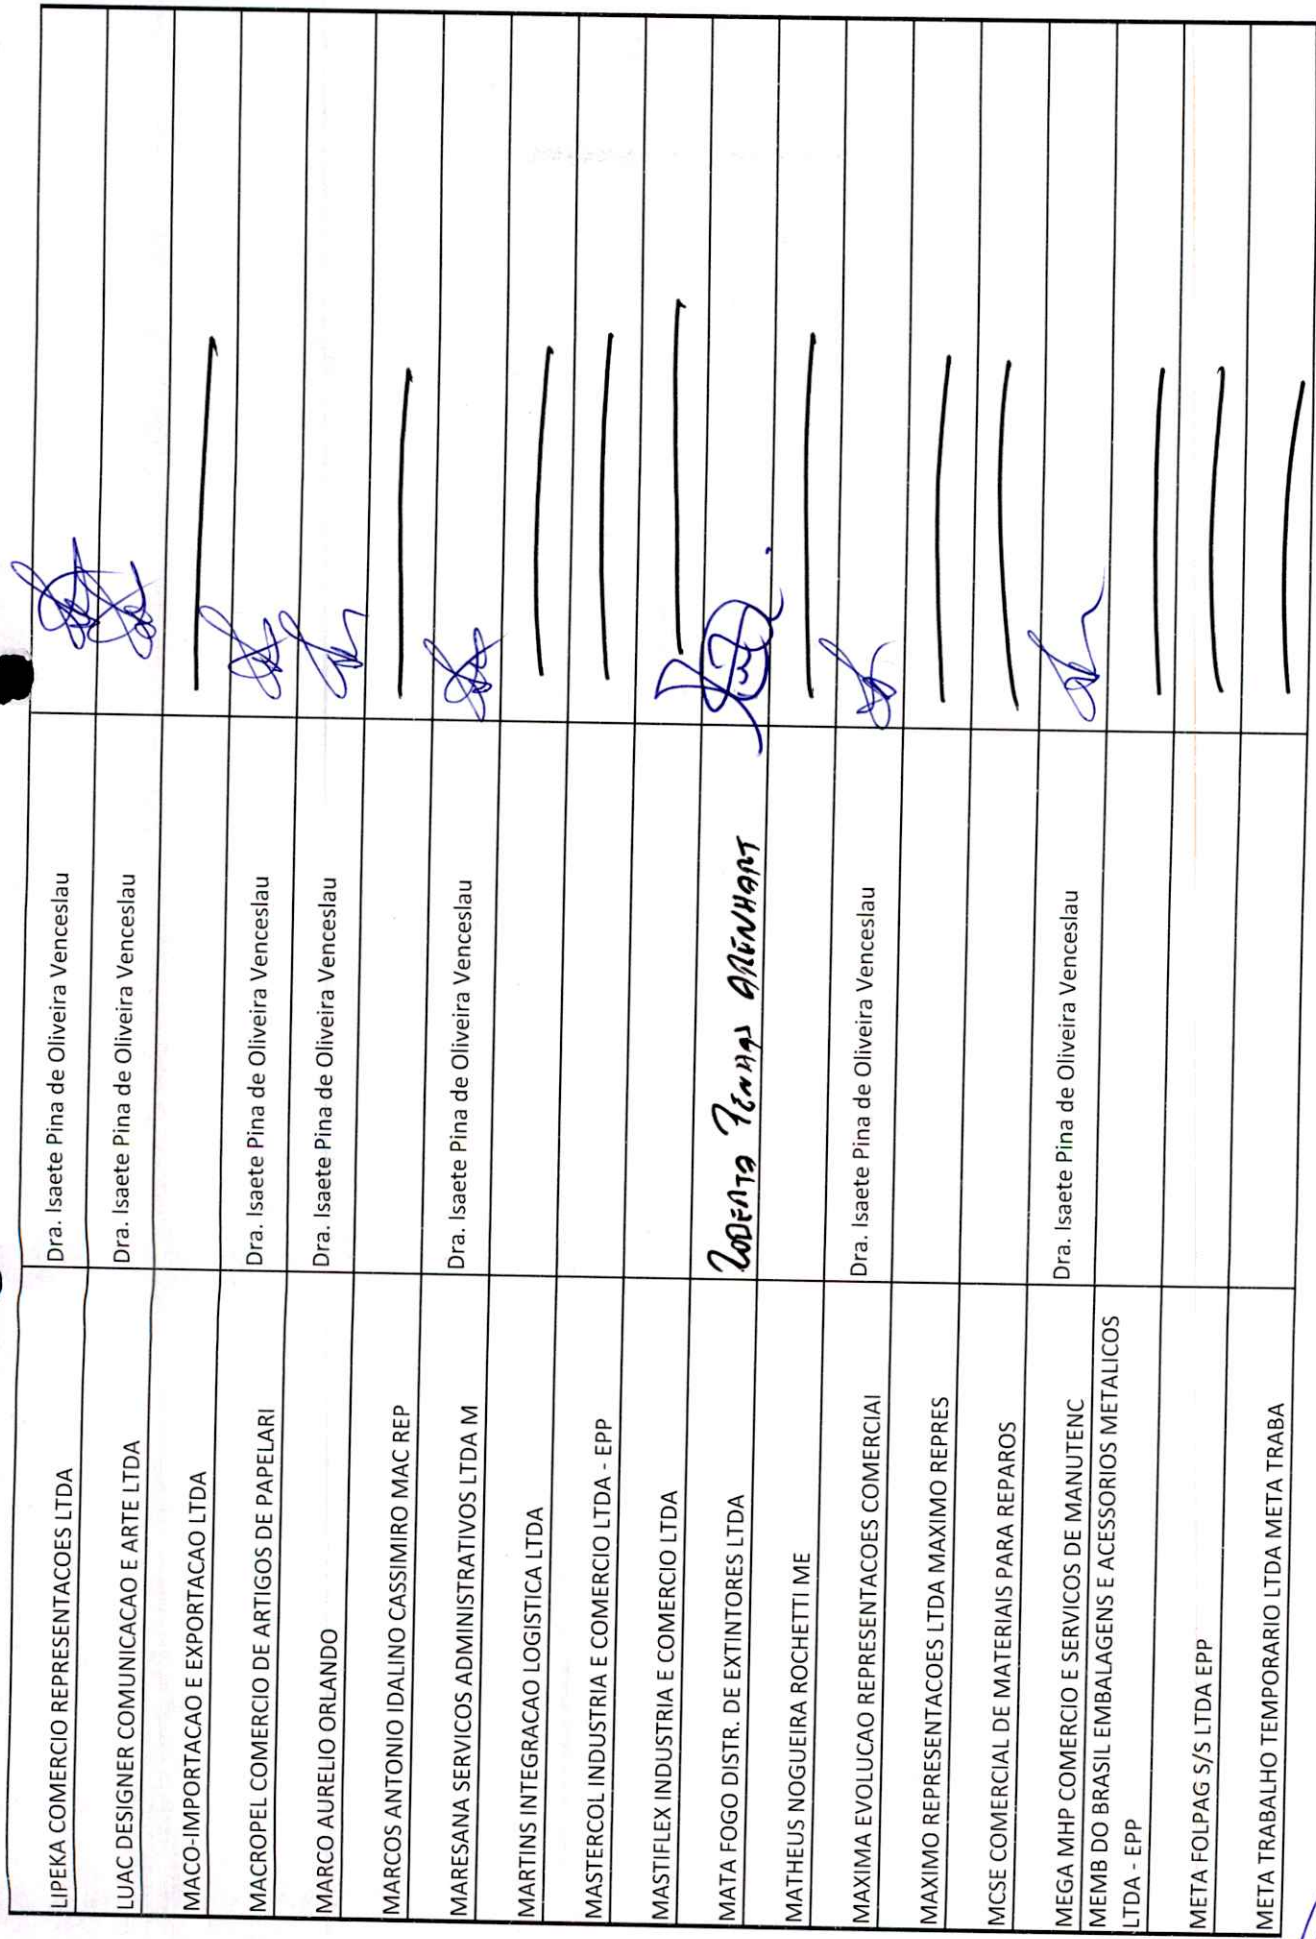 LIPEKA COMERCIO REPRESENTACOES LTDA Dra. Isaete Pina de Oliveira Venceslau
LUAC DESIGNER COMUNICACAO E ARTE LTDA Dra. Isaete Pina de Oliveira Venceslau
MACO-IMPORTACAO E EXPORTACAO LTDA
MACROPEL COMERCIO DE ARTIGOS DE PAPELARI Dra. Isaete Pina de Oliveira Venceslau
MARCO AURELIO ORLANDO Dra. Isaete Pina de Oliveira Venceslau
MARCOS ANTONIO IDALINO CASSIMIRO MAC REP
MARESANA SERVICOS ADMINISTRATIVOS LTDA M Dra. Isaete Pina de Oliveira Venceslau
MARTINS INTEGRACAO LOGISTICA LTDA
MASTERCOL INDUSTRIA E COMERCIO LTDA - EPP
MASTIFLEX INDUSTRIA E COMERCIO LTDA
MATA FOGO DISTR. DE EXTINTORES LTDA
MATHEUS NOGUEIRA ROCHETTI ME
MAXIMA EVOLUCAO REPRESENTACOES COMERCIAI Dra. Isaete Pina de Oliveira Venceslau
MAXIMO REPRESENTACOES LTDA MAXIMO REPRES
MCSE COMERCIAL DE MATERIAIS PARA REPAROS
MEGA MHP COMERCIO E SERVICOS DE MANUTENC Dra. Isaete Pina de Oliveira Venceslau
MEMB DO BRASIL EMBALAGENS E ACESSORIOS METALICOS
LTDA - EPP
META FOLPAG S/S LTDA EPP
META TRABALHO TEMPORARIO LTDA META TRABA